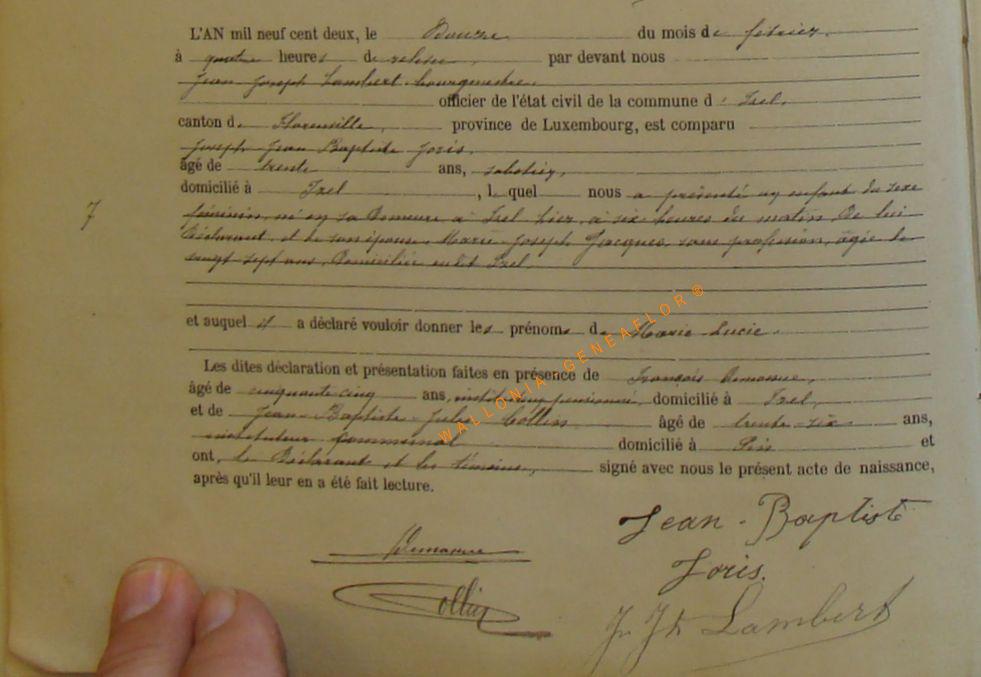 L'AN mil neuf cent deux, le Douze du mois de février
à quatre heures de relevée par devant nous
Jean Joseph Lambert bourgmestre
officier de l'état civil de la commune d' Izel,
canton de Florenville, province de Luxembourg, est comparu
Joseph Jean Baptiste Joris,
âgé de trente ans, sabotier,
domicilié à Izel, lequel nous a présenté un enfant du sexe
7
féminin, né en sa Demeure à Izel hier, à six heures du matin De lui
Déclarant et de son épouse Marie Joseph Jacques, sans profession, âgée de
vingt sept ans, Domiciliée audit Izel.
et auquel il a déclaré vouloir donner les prénoms de Marie Lucie.
Les dites déclaration et présentation faites en présence de François
âgé de cinquante cinq ans, instituteur pensionné, domicilié à Izel,
et de Jean-Baptiste Jules Collin âgé de trente-six ans,
instituteur communal domicilié à et
ont, le Déclarant et les témoins, signé avec nous le présent acte de naissance,
après qu'il leur en a été fait lecture.
WALLONIA-GENEAFLOR®
Jean-Baptiste
Joris.
Collin
J. Jh Lambert